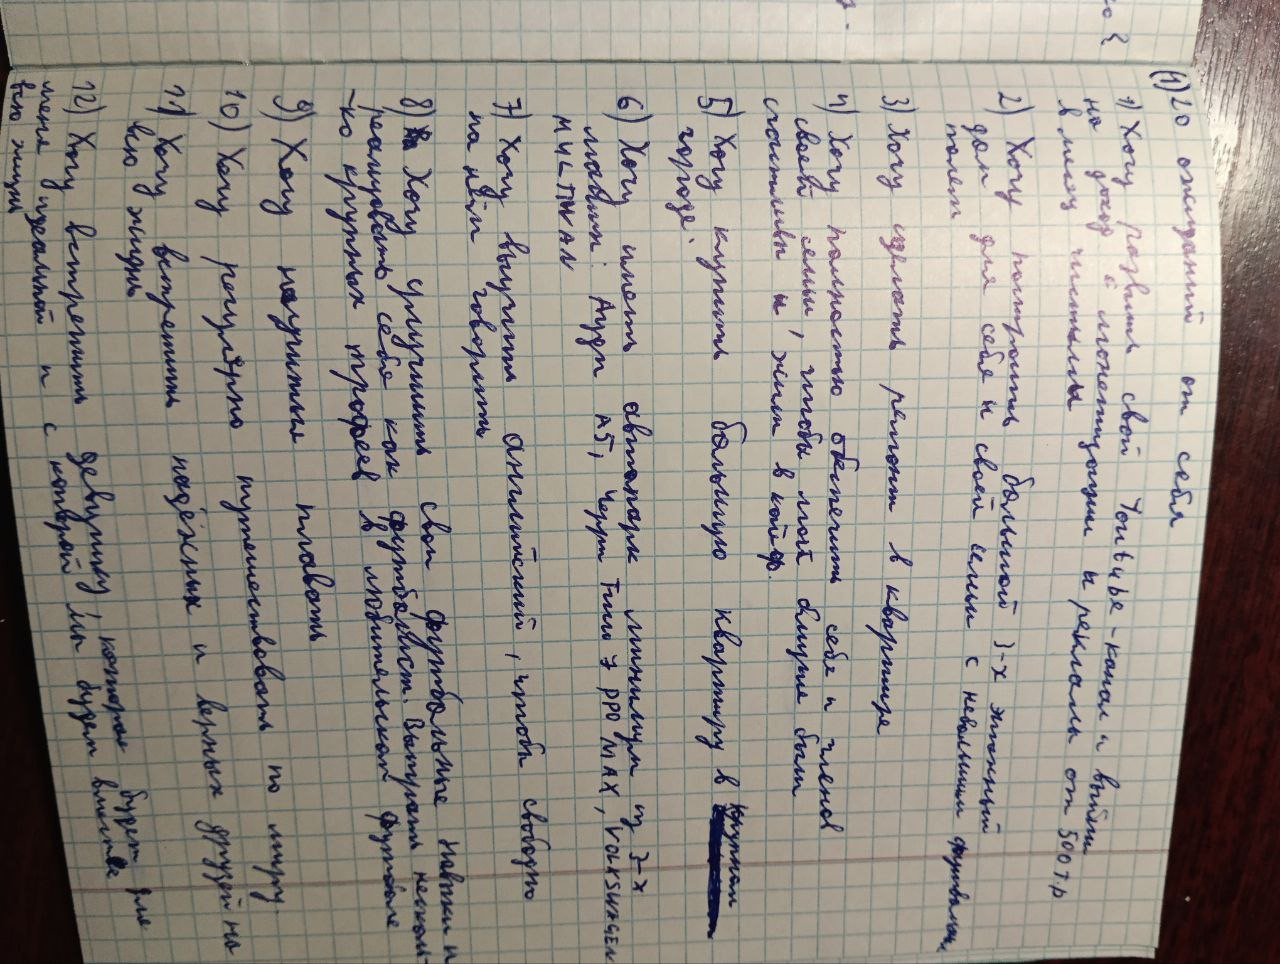 (1) 20 ожиданий от себя
1) Хочу развить свой Ютьубе-канал и выйти
на доход с монетизации и рекламы от 500 т.р
в месяц чистыми
2) Хочу построить большой 3-х этажный
дом для себя и своей семьи с небольшим футбольным
полем
3) Хочу сделать ремонт в квартире
4) Хочу полностью обеспечить себя и членов
своей семьи, чтобы мои близкие были
счастливы и жили в кайф.
5) Хочу купить большую квартиру в крупном
городе.
6) Хочу иметь автопарк минимум из 3-х
машин: Ауди А5, Черри Tiggo 7 PRO MAX, VOLKSWAGEN
МУЛЬТИВАН
7) Хочу выучить английский, чтобы свободно
на нём говорить
8) Хочу улучшить свои футбольные навыки и
реализовать себя как футболист. Выиграть несколь-
-ко крупных трофеев в любительском футболе
9) Хочу научиться плавать
10) Хочу регулярно путешествовать по миру.
11) Хочу встретить надёжных и верных друзей на
всю жизнь
12) Хочу встретить девушку, которая будет для
меня идеальной и с которой мы будем вместе
всю жизнь